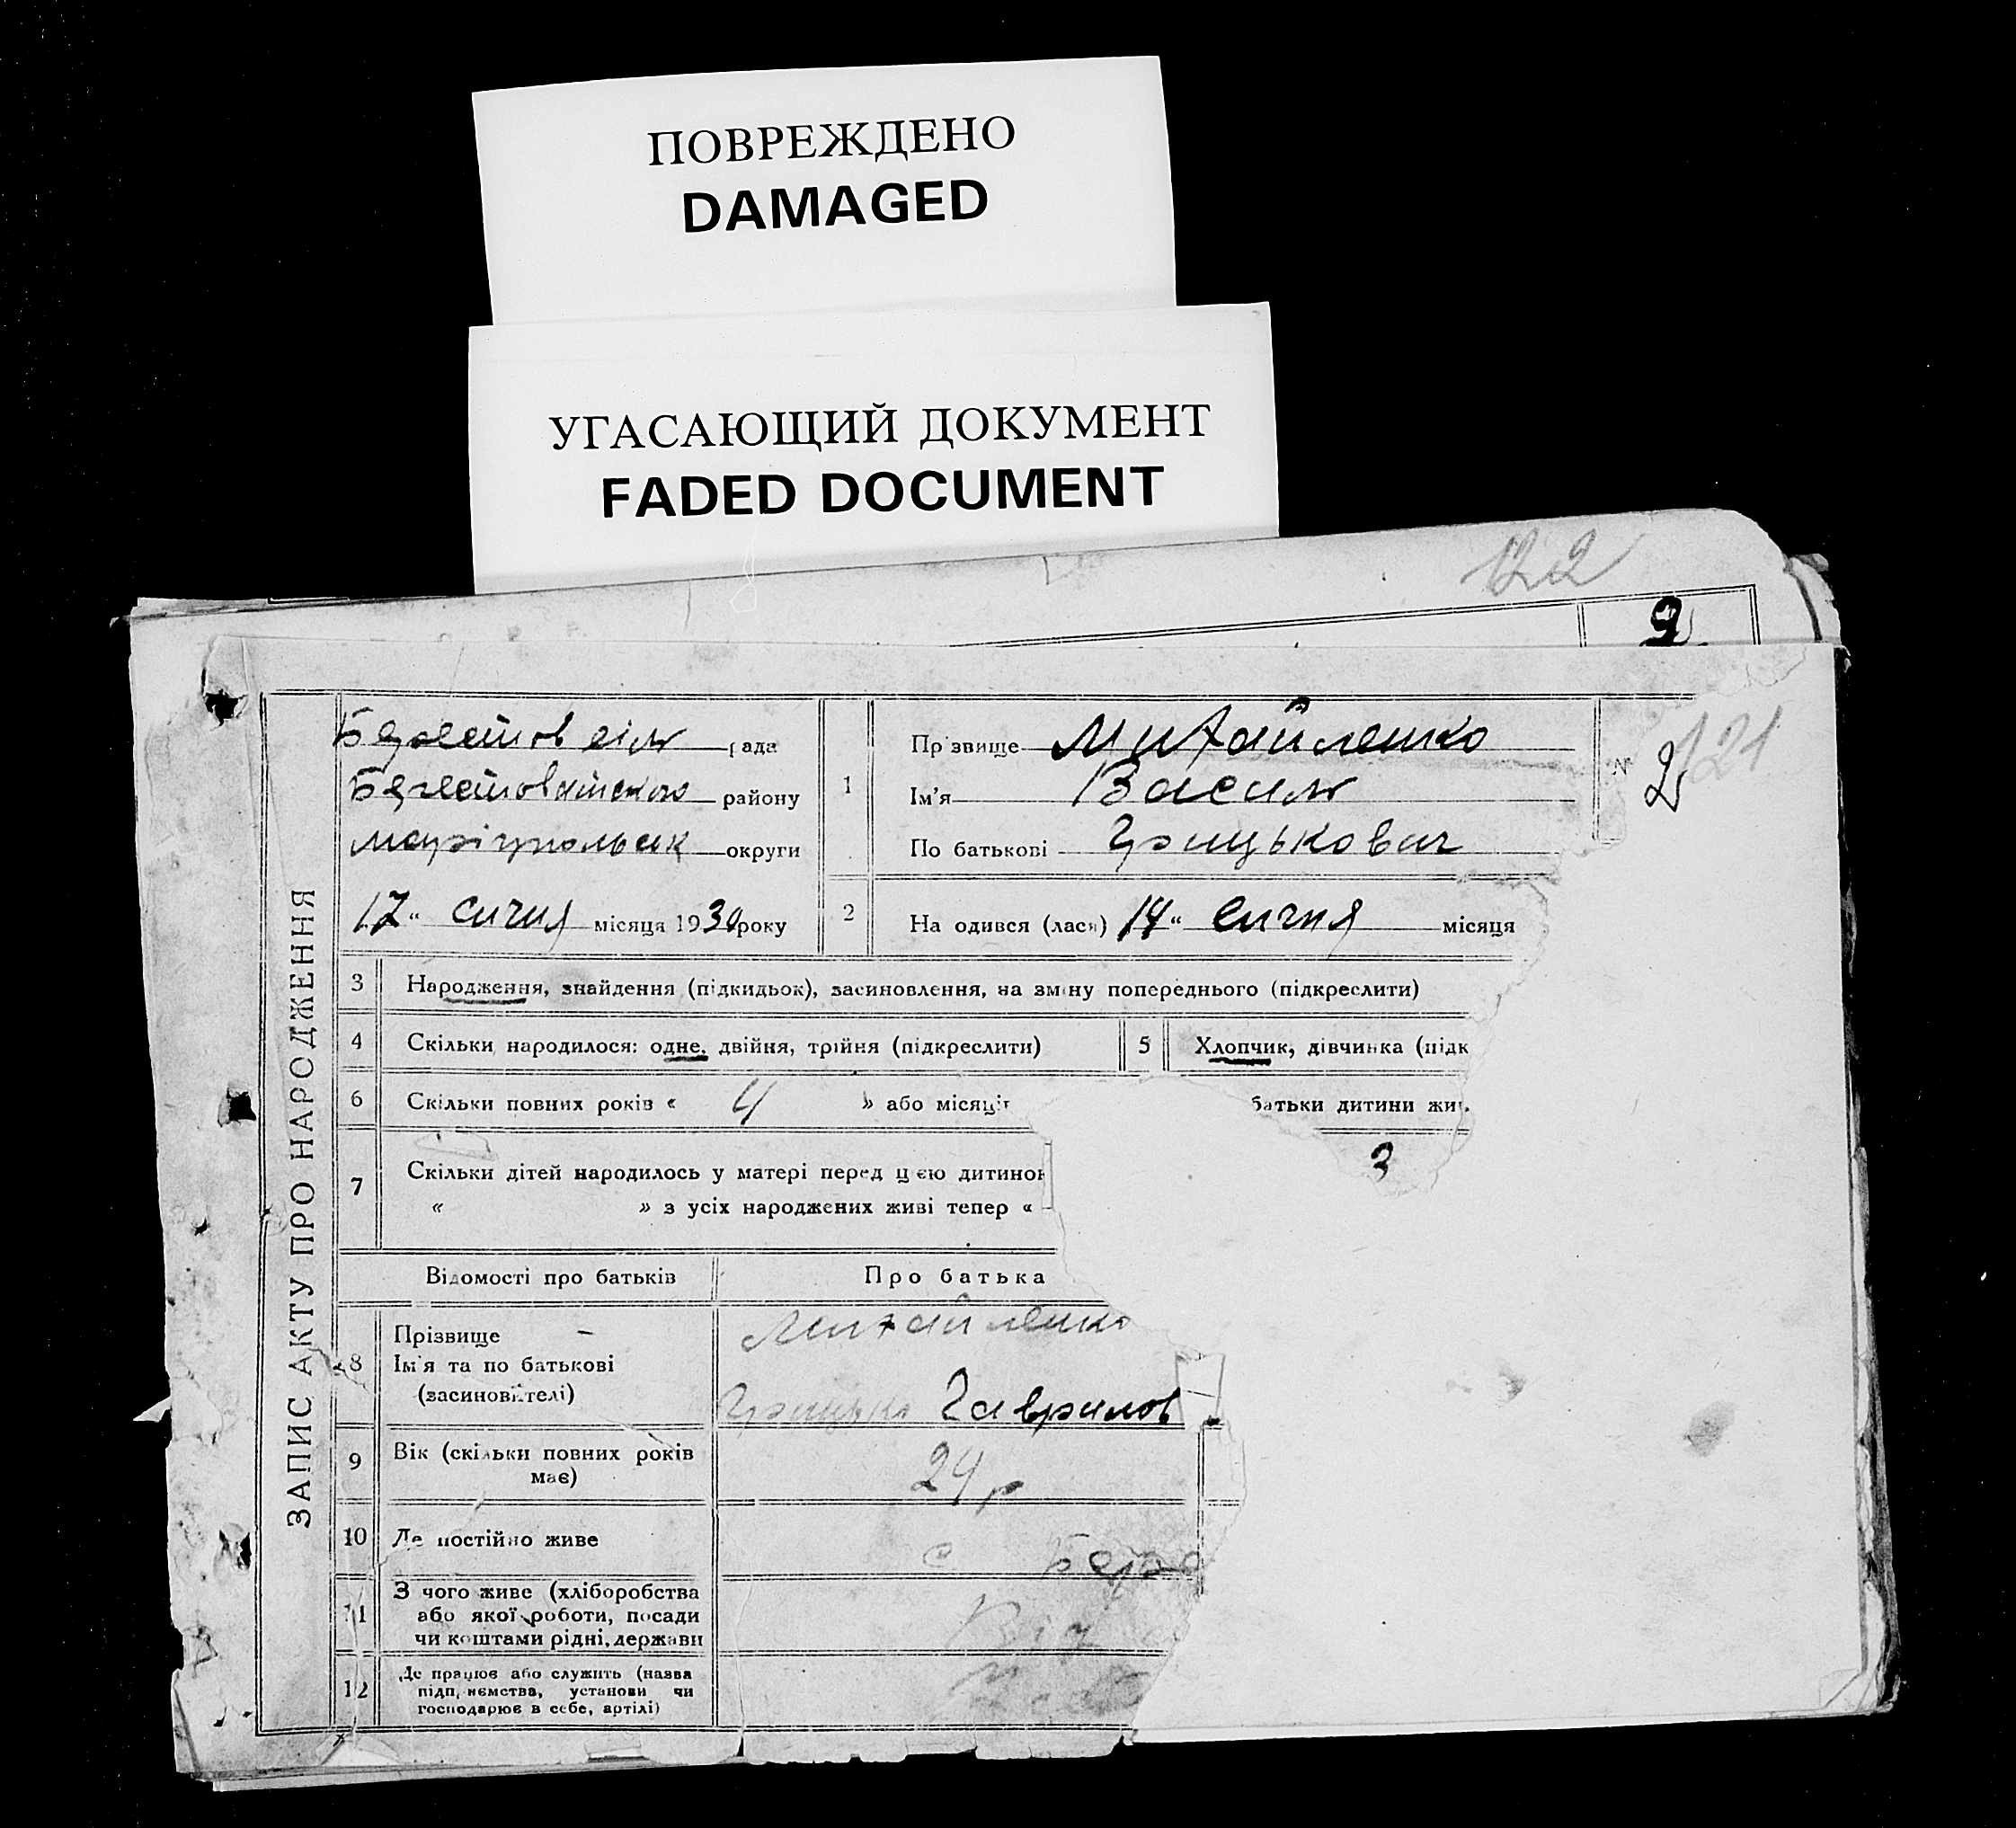 ПОВРЕЖДЕНО
DAMAGED
УГАСАЮЩИЙ ДОКУМЕНТ
FADED DOCUMENT
122
9
ЗАПИС АКТУ ПРО НАРОДЖЕННЯ
рада
району
округи
17 " січня місяця 1930 року
1
Прізвище Михайленко
Ім'я Василь
По батькові Грицькович
№ 2
121
2
На одився (лася) 14 " січня місяця
3 Народження, знайдення (підкидьок), засиновлення, на зміну попереднього (підкреслити)
4 Скільки народилося: одне, двійня, трійня (підкреслити)
5 Хлопчик, дівчинка (підк
6 Скільки повних років « 4 » або місяців
батьки дитини жи
7 Скільки дітей народилось у матері перед цією дитиною
3
« » з усіх народжених живі тепер «
Відомості про батьків
Про батька
8 Прізвище
Ім'я та по батькові
(засиновителі)
Михайленко
Грицько Гаврилов
9 Вік (скільки повних років
має)
24 р
10 Де постійно живе
с Бере
11 З чого живе (хліборобства
або якої роботи, посади
чи коштами рідні, держави
12 Де працює або служить (назва
підп, немства, установи чи
господарює в себе, артілі)